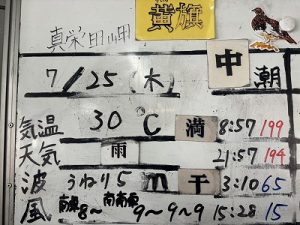 黄旗
真栄田岬
7/25(木) 中潮
気温 30℃ 満 8:57 199
天気 雨 21:57 194
波 うねり5m 干 3:10 65
風 南東8〜 南南東9〜9〜9 15:28 15